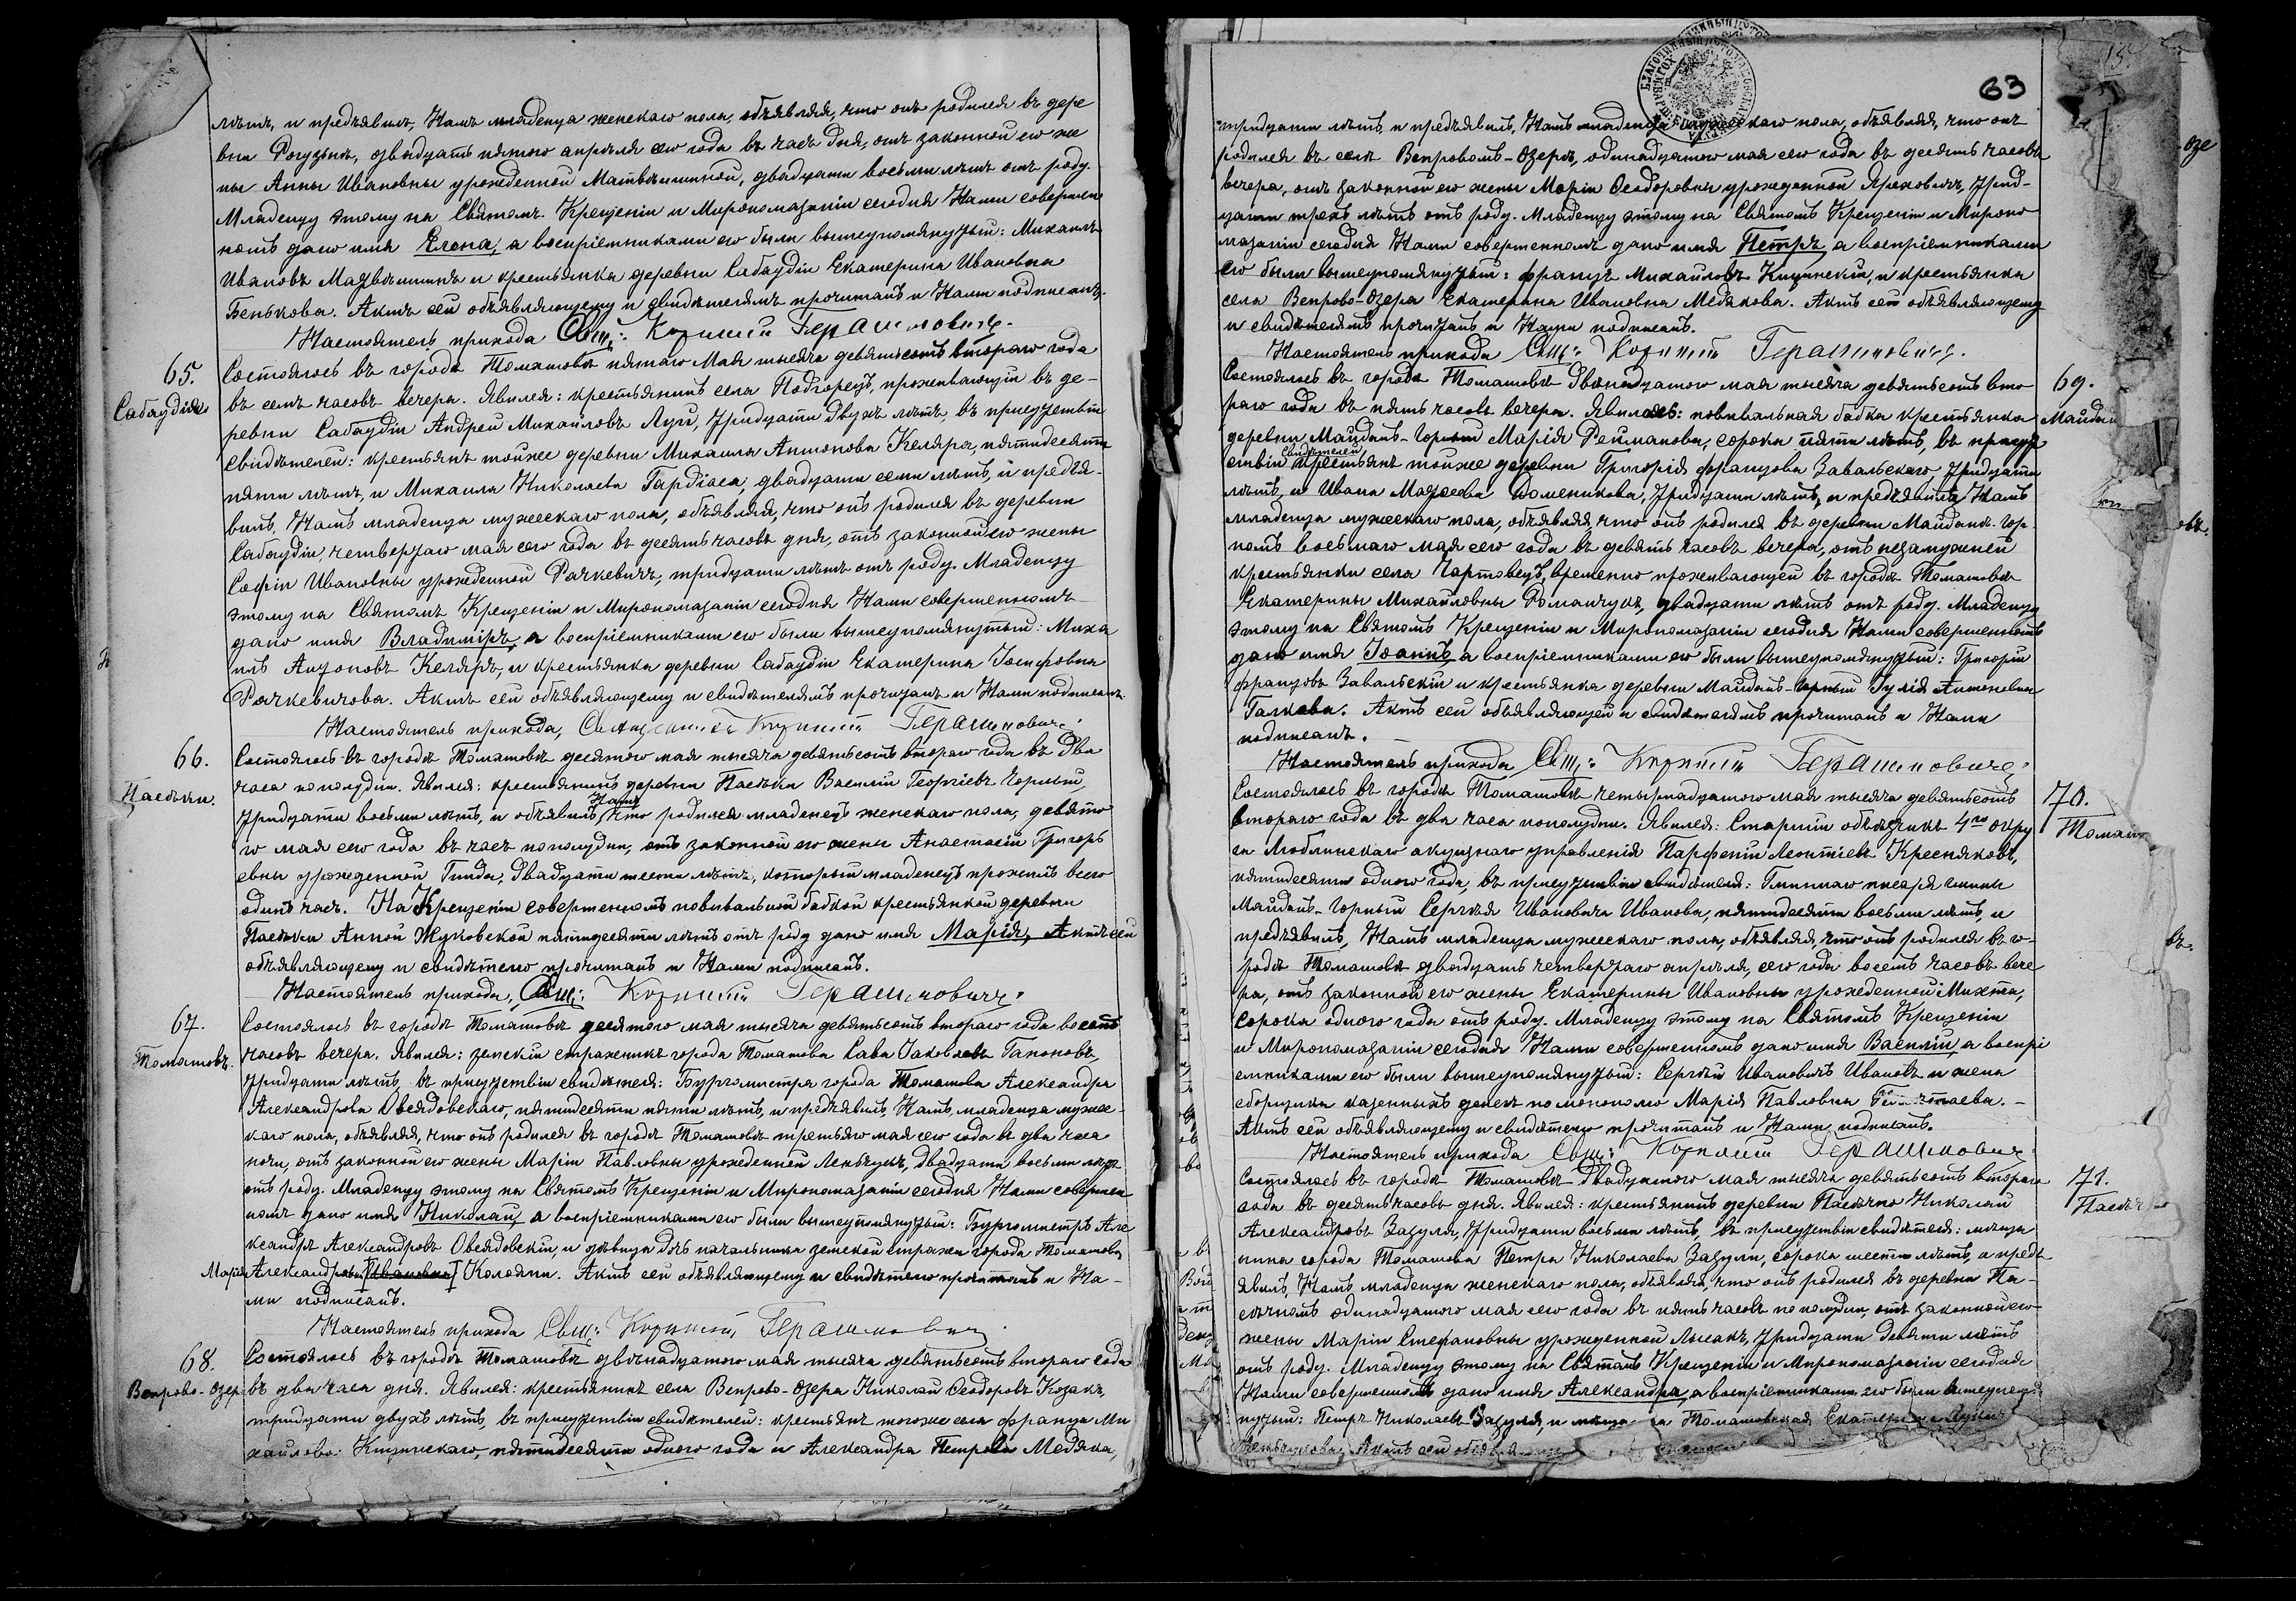 лѣтъ, и предъявилъ, Намъ младенца женскаго пола, объявляя, что онъ родился въ дере
вни Рогузьнѣ, двадцать пятого апрѣля сего года въ часъ дня, отъ законной его же
ны Анны Ивановны урожденной Матвѣишиной, двадцати восьми лѣтъ отъ роду.
Младенцу этому на Святомъ Крещеніи и Миропомазаніи сегодня Нами совершен
номъ дано имя Елена, а воспріемниками его были вышеупомянутый: Михаилъ
Ивановъ Матвѣишинъ и крестьянка деревни Сабаудіи Екатерина Ивановна
Бенькова. Актъ сей объявляющему и свидѣтелямъ прочитанъ и Нами подписанъ.
Настоятель прихода Свящ: Корнилій Герасимовичъ.
65.
Сабаудія
Состоялось въ городѣ Томашовѣ пятаго Мая тысяча девятьсотъ втораго года
въ семь часовъ вечера. Явился: крестьянинъ села Подгорецъ, проживающій въ де-
ревни Сабаудіи Андрей Михайловъ Луги, тридцати двухъ лѣтъ, въ присутствіи
свидѣтелей: крестьянъ тойже деревни Михаила Антонова Келяра, пятидесяти
пяти лѣтъ, и Михаила Николаева Гардіаса, двадцати семи лѣтъ, и предъя-
вилъ, Намъ младенца мужескаго пола, объявляя, что онъ родился въ деревни
Сабаудіи, четвертаго мая сего года въ десять часовъ дня, отъ законной его жены
Софіи Ивановны урожденной Рачкевичъ, тридцати лѣтъ отъ роду. Младенцу
этому на Святомъ Крещеніи и Миропомазаніи сегодня Нами совершенномъ
дано имя Владиміръ, а воспріемниками его были вышеупомянутый: Миха
илъ Антоновъ Келяръ, и крестьянка деревни Сабаудіи Екатерина Іосифовна
Рачкевичова. Актъ сей объявляющему и свидѣтелямъ прочитанъ и Нами подписанъ.
Настоятель прихода, Священникъ Корнилій Герасимовичъ.
66.
Пасѣки.
Состоялось въ городѣ Томашовѣ десятого мая тысяча девятьсотъ втораго года въ два
часа пополудни. Явился: крестьянинъ деревни Пасѣки Василій Георгіевъ Чорный,
Намъ
тридцати восьми лѣтъ, и объявилъ, что родился младенецъ женскаго пола, девято
го мая сего года въ часъ пополудни, отъ законной его жены Анастасіи Григорь
евны урожденной Гинда, двадцати шести лѣтъ, который младенецъ прожилъ всего
одинъ часъ. На Крещеніи совершенномъ повивальной бабкой крестьянкой деревни
Пасѣки Анной Жуковской пятидесяти лѣтъ отъ роду дано имя Марія. Актъ сей
объявляющему и свидѣтелю прочитанъ и Нами подписанъ.
Настоятель прихода, Свящ: Корнилій Герасимовичъ.
67.
Томашовъ.
Состоялось въ городѣ Томашовѣ десятого мая тысяча девятьсотъ втораго года восемь
часовъ вечера. Явился: земскій стражникъ города Томашова Сава Іаковлевъ Гапоновъ,
тридцати лѣтъ, въ присутствіи свидѣтеля: Бургомистра города Томашова Александра
Александрова Овсядовскаго, пятидесяти пяти лѣтъ, и предъявилъ Намъ, младенца мужес-
каго пола, объявляя, что онъ родился въ городѣ Томашовѣ третьяго мая сего года въ два часа
ночи, отъ законной его жены Маріи Павловны урожденной Леньчукъ, двадцати восьми лѣтъ
отъ роду. Младенцу этому на Святомъ Крещеніи и Миропомазаніи сегодня Нами совершен
номъ дано имя Николай, а воспріемниками его были вышеупомянутый: Бургомистръ Але
ксандръ Александровъ Овсядовскій, и дѣвица дочь начальника земской стражи города Томашова
Марія Александровна [Ивановна] Колоянъ. Актъ сей объявляющему и свидѣтелю прочитанъ и На-
ми подписанъ.
Настоятель прихода Свящ: Корнилій Герасимовичъ.
68.
Вепрово-Озеро
Состоялось въ городѣ Томашовѣ двѣнадцатого мая тысяча девятьсотъ втораго года
въ два часа дня. Явился: крестьянинъ села Вепрово-Озера Николай Ѳеодоровъ Козакъ,
тридцати двухъ лѣтъ, въ присутствіи свидѣтелей: крестьянъ тогоже села Франца Ми
хайлова: Кицинскаго, пятидесяти одного года и Александра Петрова Медяка,
63
тридцати лѣтъ, и предъявилъ, Намъ младенца мужескаго пола, объявляя, что онъ
родился въ селѣ Вепровомъ-Озерѣ, одинадцатого мая сего года въ десять часовъ
вечера, отъ законной его жены Маріи Ѳеодоровны урожденной Яцковичъ, тряд-
цати трехъ лѣтъ отъ роду. Младенцу этому на Святомъ Крещеніи и Миропо
мазаніи сегодня Нами совершенномъ дано имя Петръ, а воспріемниками
его были вышеупомянутый: Францъ Михайловъ Кицинскій, и крестьянка
села Вепрово-Озера Екатерина Ивановна Медякова. Актъ сей объявляющему
и свидѣтелямъ прочитанъ и Нами подписанъ.
Настоятель прихода Свящ: Корнилій Герасимовичъ.
69.
Майданъ
Состоялось въ городѣ Томашовѣ двенадцатого мая тысяча девятьсотъ вто
раго года въ пять часовъ вечера. Явилась: повивальная бабка крестьянка
деревни Майданъ-Горный Марія Рейманова, сорока пяти лѣтъ, въ присут
свидѣтелей
ствіи крестьянъ тойже деревни Григорія Францова Завальскаго тридцати
лѣтъ, и Ивана Матѳеева Доменикова, тридцати лѣтъ, и предъявила Намъ
младенца мужескаго пола, объявляя, что онъ родился въ деревни Майданѣ-Гор-
номъ восьмаго мая сего года въ девять часовъ вечера, отъ незамужней
крестьянки села Чартовецъ, временно проживающей въ городѣ Томашовѣ
Екатерины Михайловны Романчукъ, двадцати лѣтъ отъ роду. Младенцу
этому на Святомъ Крещеніи и Миропомазаніи сегодня Нами совершенномъ
дано имя Іоаннъ, а воспріемниками его были вышеупомянутый: Григорій
Францовъ Завальскій и крестьянка деревни Майданъ-Горный Юлія Антоневна
Галкова. Актъ сей объявляющей и свидѣтелямъ прочитанъ и Нами
подписанъ.
Настоятель прихода Свящ: Корнилій Герасимовичъ.
70.
Томаш
Состоялось въ городѣ Томашовѣ четырнадцатого мая тысяча девятьсотъ
втораго года въ два часа пополудни. Явился: Старшій объѣзчикъ 4го окру
га Люблинскаго акцизнаго управленія Парфеній Леонтіевъ Кресняковъ,
пятидесяти одного года, въ присутствіи свидѣтеля: Гминнаго писаря гмины
Майданъ-Горный Сергѣя Ивановича Иванова, пятидесяти восьми лѣтъ, и
предъявилъ, Намъ младенца мужескаго пола, объявляя, что онъ родился въ го-
родѣ Томашовѣ двадцать четвертаго апрѣля, сего года восемь часовъ вече
ра, отъ законной его жены Екатерины Ивановны урожденной Михта,
сорока одного года отъ роду. Младенцу этому на Святомъ Крещеніи
и Миропомазаніи сегодня Нами совершенномъ дано имя Василій, а воспрі
емниками его были вышеупомянутый: Сергѣй Ивановичъ Ивановъ и жена
сборщика казенныхъ денегъ по монополю Марія Павловна
Актъ сей объявляющему и свидѣтелю прочитанъ и Нами подписанъ.
Настоятель прихода Свящ: Корнилій Герасимовичъ.
71.
Пасѣч
Состоялось въ городѣ Томашовѣ двадцатого мая тысяча девятьсотъ втораго
года въ десять часовъ дня. Явился: крестьянинъ деревни Пасѣчно Николай
Александровъ Зазуля, тридцати восьми лѣтъ, въ присутствіи свидѣтеля: мѣща
нина города Томашова Петра Николаева Зазули, сорока шести лѣтъ, и предъ
явилъ, Намъ младенца женскаго пола, объявляя, что онъ родился въ деревни Па-
сѣчномъ одинадцатого мая сего года въ пять часовъ по полудни, отъ законной его
жены Маріи Стефановны урожденной Лысакъ, тридцати девяти лѣтъ
отъ роду. Младенцу этому на Святомъ Крещеніи и Миропомазаніи сегодня
Нами совершенномъ дано имя Александра, а воспріемниками его были вышеупомя
нутый: Петръ Николаевъ Зазуля, и мѣща ка Томашовская Екатерина
Актъ сей объявля